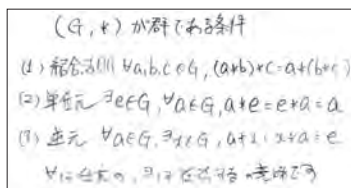 (G, *) が群である条件
(1) 結合法則 ∀a,b,c∈G, (a*b)*c=a*(b*c)
(2) 単位元 ∃e∈G, ∀a∈G, a*e=e*a=a
(3) 逆元 ∀a∈G, ∃x∈G, a*x=x*a=e
∀は全ての, ∃は 存在する の意味です